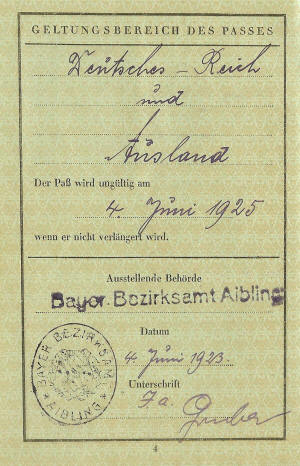 GELTUNGSBEREICH DES PASSES
Deutsches - Reich
und
Ausland
Der Paß wird ungültig am
4. Juni 1925
wenn er nicht verlängert wird.
Ausstellende Behörde
Bayer. Bezirksamt Aibling
Datum
BAYER. BEZIRKSAMT
AIBLING
4. Juni 1923.
Unterschrift
J. a.
Gruber
4